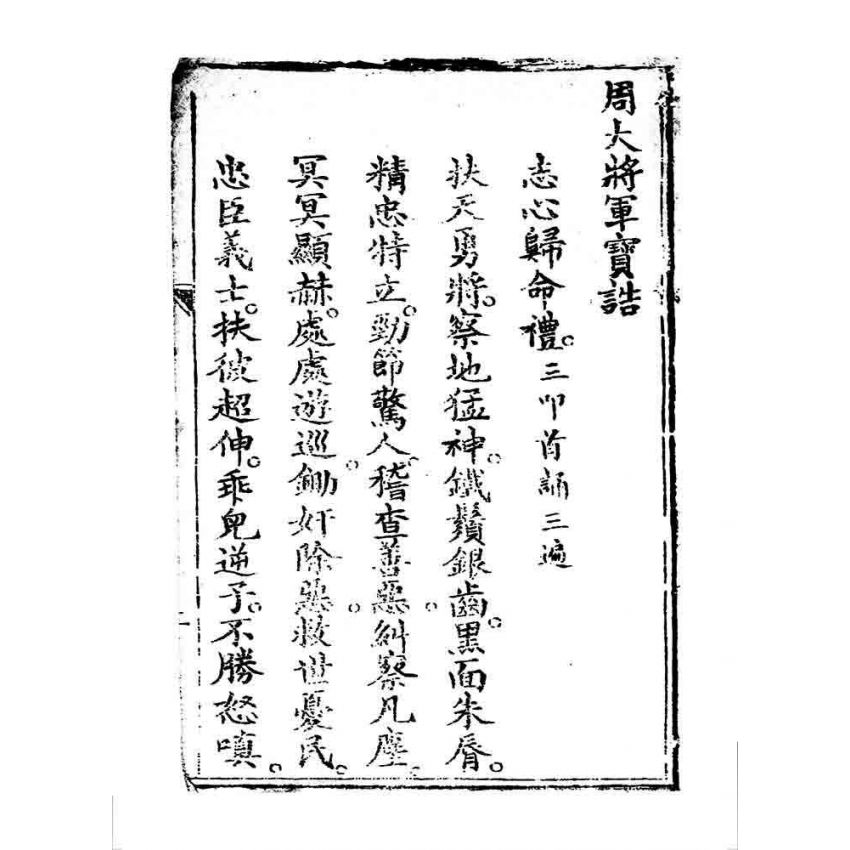 周大將軍寶誥
志心歸命禮。三叩首誦三遍
扶天勇將。察地猛神。鐵鬚銀齒。黑面朱脣。
精忠特立。勁節驚人。稽查善惡。糾察凡塵。
冥冥顯赫。處處遊巡。鋤奸除惡。救世憂民。
忠臣義士。扶彼超伸。乖兒逆子。不勝怒嗔。
二